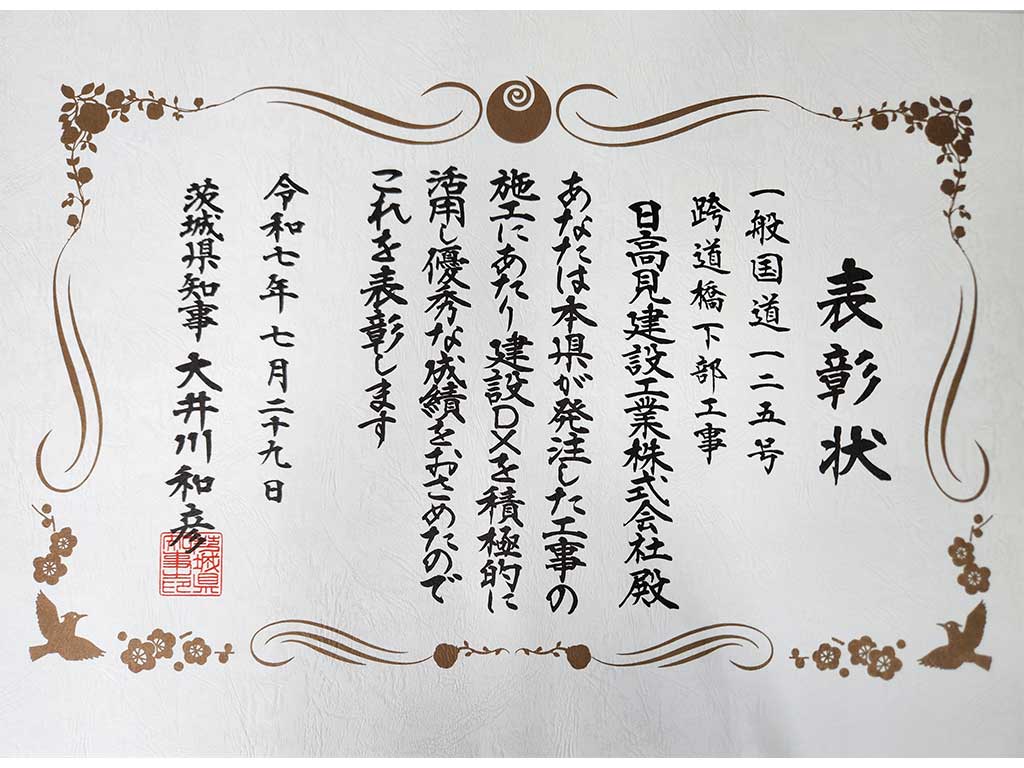 表彰状
一般国道一二五号
跨道橋下部工事
日高見建設工業株式会社殿
あなたは本県が発注した工事の
施工にあたり建設DXを積極的に
活用し優秀な成績をおさめたので
これを表彰します
令和七年七月二十九日
茨城県知事 大井川和彦
茨城県
知事印